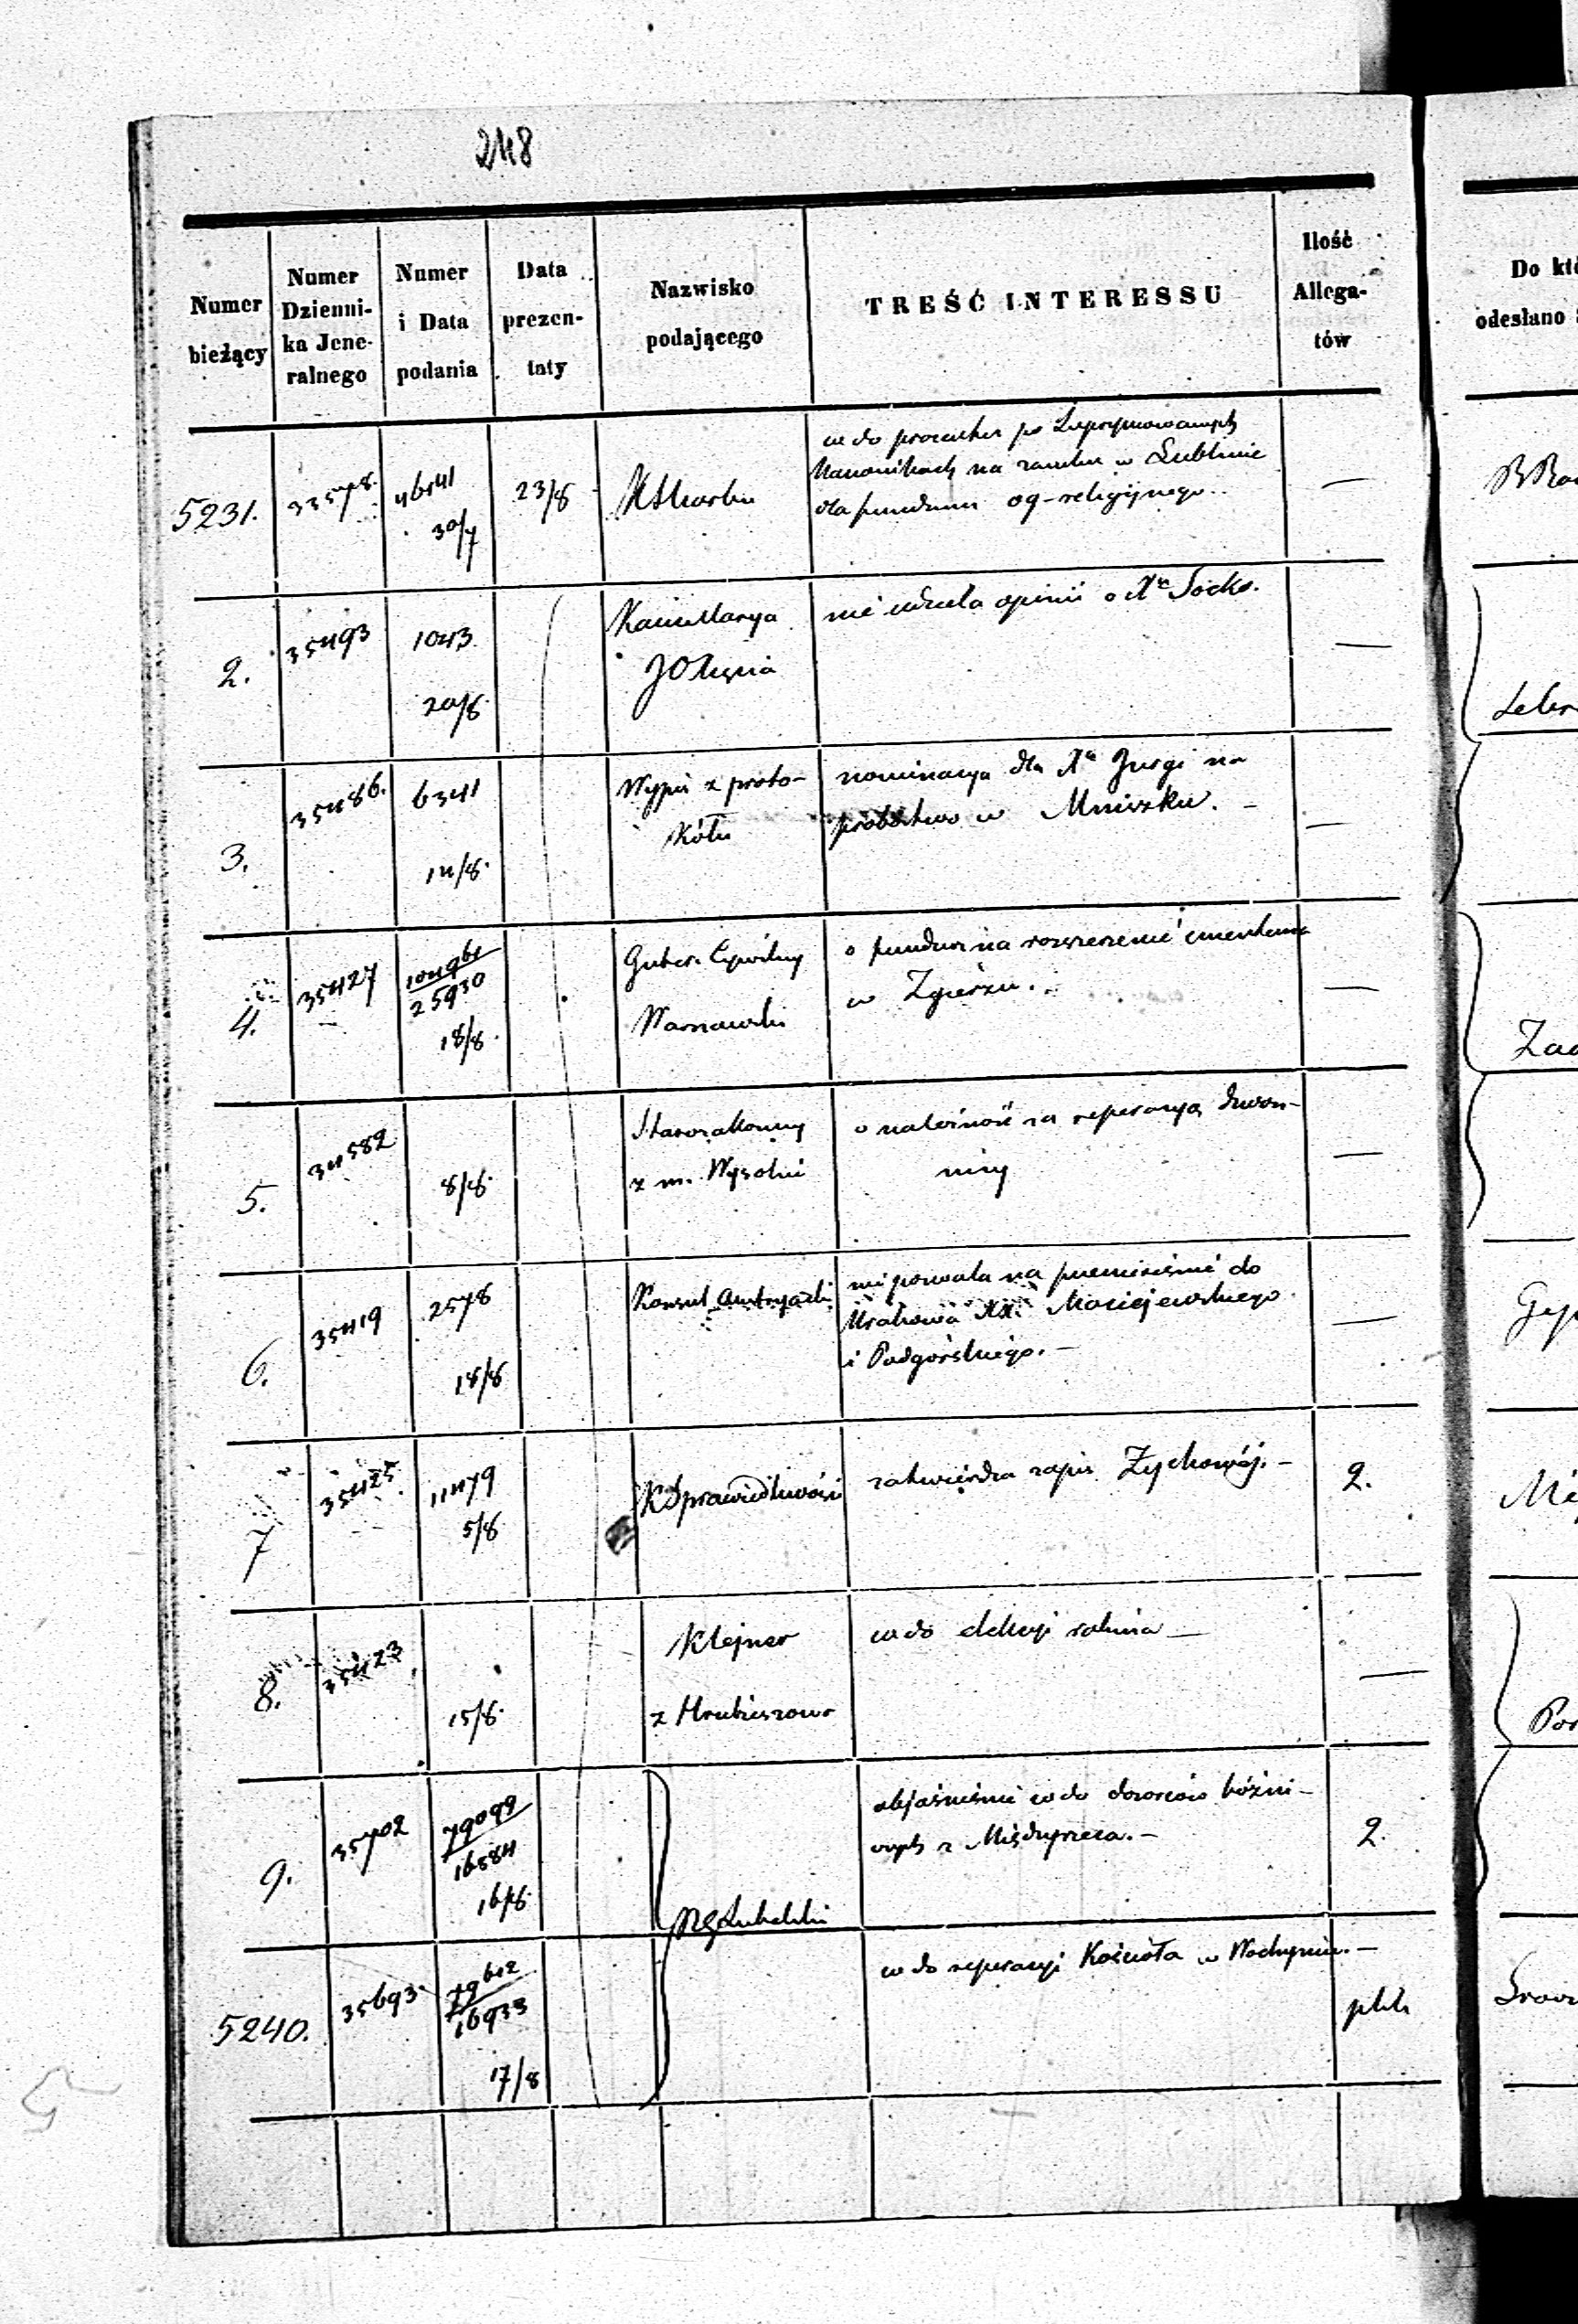 248
Numer bieżący
Numer Dzienni-ka Jene-ralnego
Numer i Data podania
Data prezen-taty
Nazwisko podającego
TREŚĆ INTERESSU
Ilość Allega-tów
Do któ
odesłano
5231. 33578. 46541 30/7 23/8 KSkarbu
co do procentu po Supprymowanych
Kanonikach na zamku w Lublinie
dla funduszu og-religijnego..
—
2. 35493 1043 20/8 Kancellarya
JO Xięcia
nie udziela opinii o Xu Socko.
—
3. 35486. 6341 14/8 Wypis z proto-
kółu
nominacya dla Xa Jurgi na
probostwo w Mniszku. —
—
4. 35427 25930 18/8 Guber. Cywilny
Warszawski
o fundusz na rozszerzenie cmentarza
w Zgierzu.
—
5. 34582 8/8 Starozakonny
z m. Wysokie
o należność za reperacyą dzwon-
nicy
—
6. 35419 2578 18/8 Konsul Austryacki
nie pozwala na przeniesienie do
Krakowa XX. Maciejewskiego
i Podgórskiego. —
—
7 35425 11479 5/8 KSprawiedliwości
zatwierdza zapis Zychowéj. —
2.
8. 35423 15/8 Klejner
z Hrubieszowa
co do elekcyi rabina —
—
9. 35702 79099 16584 16/8
objaśnienie co do dozorców bóżni-
cznych z Międzyrzeca. —
2.
RGLubelski
5240. 35693. 79612 16933 17/8
co do reperacyi Kościoła w Wohyniu. —
plik